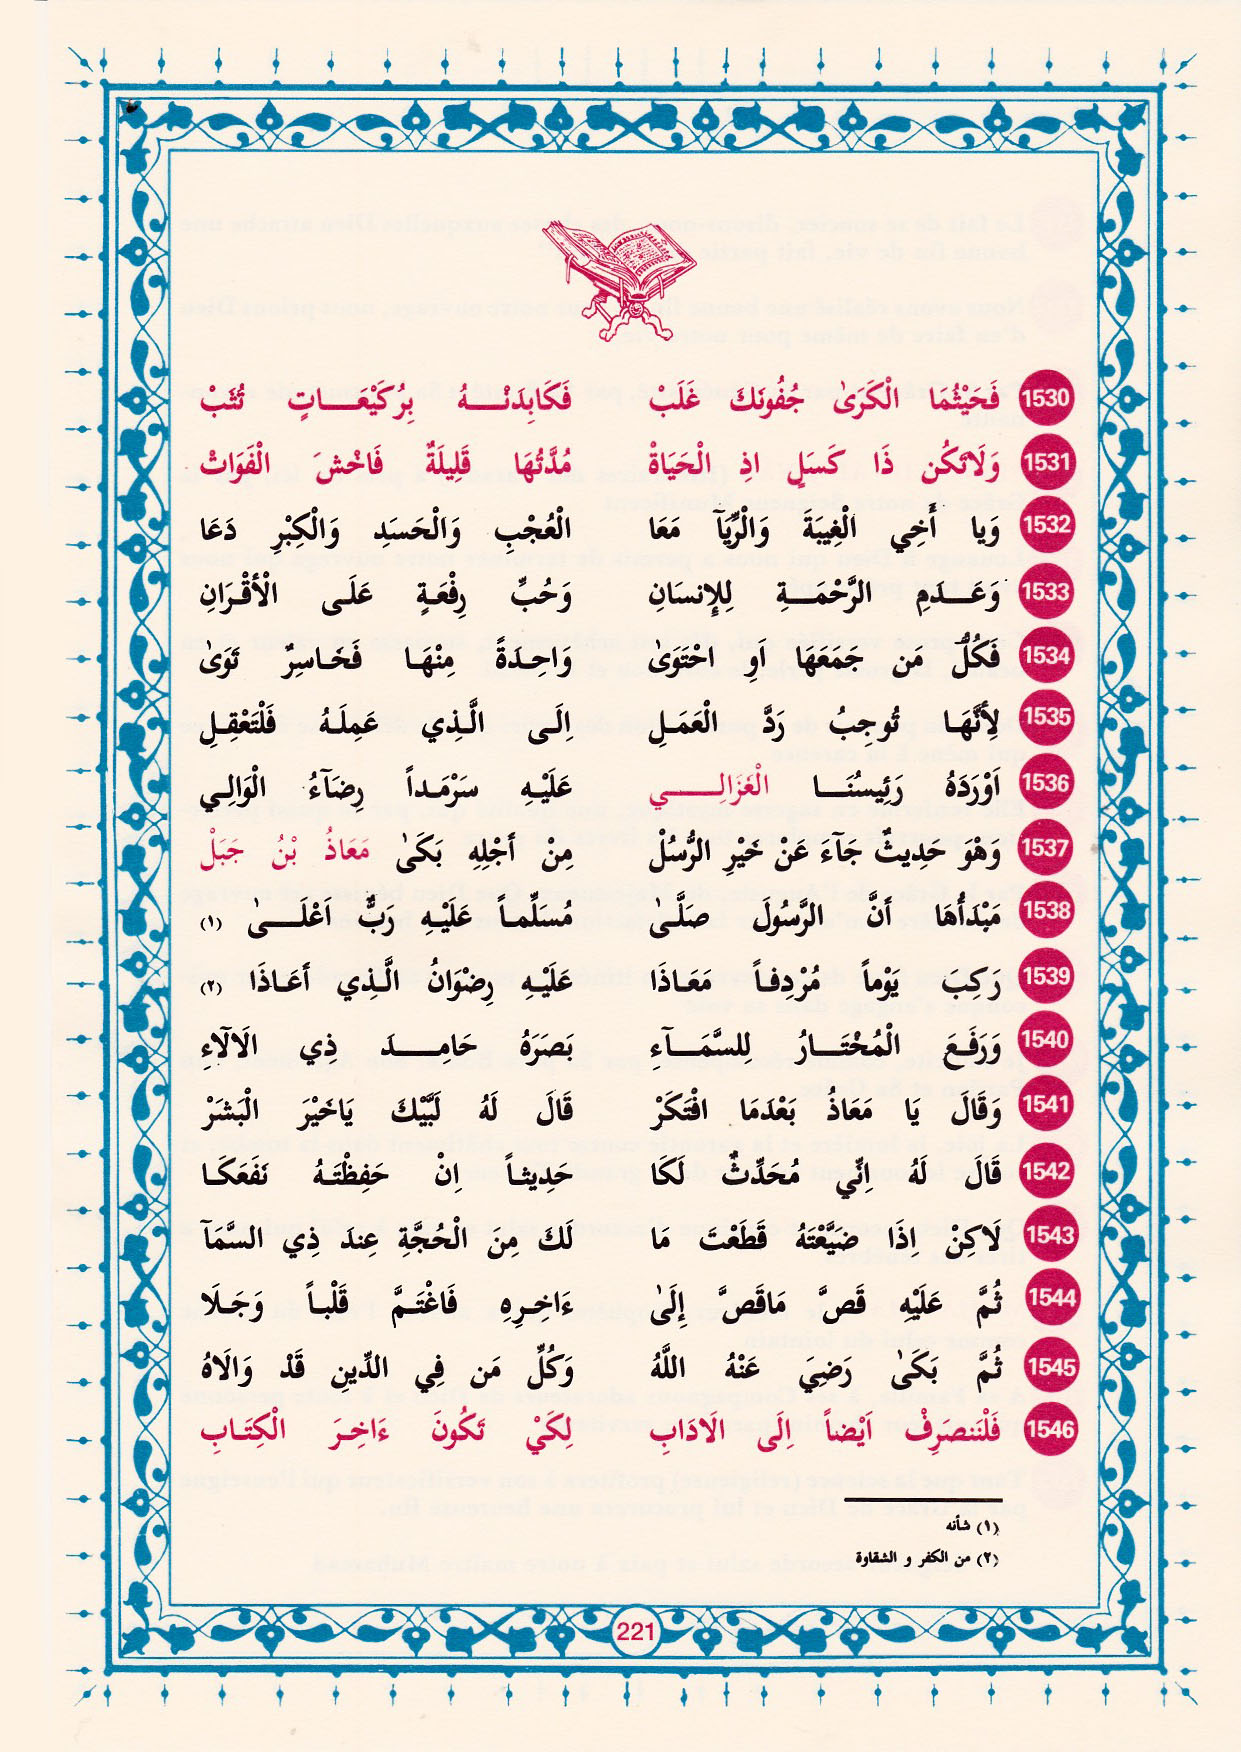 1530 فَحَيْثُمَا الْكَرَىٰ جُفُونَكَ غَلَبْ فَكَابِدَنْهُ بِرُكَيْعَاتٍ تُثَبْ
1531 وَلَاتَكُن ذَا كَسَلٍ اذِ الْحَيَاةْ مُدَّتُهَا قَلِيلَةٌ فَاخْشَ الْفَوَاتْ
1532 وَيا أَخِي الْغِيبَةَ وَالْرِّيَآ مَعَا الْعُجْبِ وَالْحَسَدِ وَالْكِبْرِ دَعَا
1533 وَعَدَمِ الرَّحْمَةِ لِلإِنسَانِ وَحُبِّ رِفْعَةٍ عَلَى الْأَقْرَانِ
1534 فَكُلُّ مَن جَمَعَهَا اَوِ احْتَوَىٰ وَاحِدَةً مِنْهَا فَخَاسِرٌ تَوَىٰ
1535 لِأَنَّهَا تُوجِبُ رَدَّ الْعَمَلِ اِلَى الَّذِي عَمِلَهُ فَلْتَعْقِلِ
1536 اَوْرَدَهُ رَئِيسُنَا الْغَزَالِي عَلَيْهِ سَرْمَداً رِضَآءُ الْوَالِي
1537 وَهْوَ حَدِيثٌ جَآءَ عَنْ خَيْرِ الرُّسُلْ مِنْ أَجْلِهِ بَكَىٰ مَعَاذُ بْنُ جَبَلْ
1538 مَبْدَأُهَا أَنَّ الرَّسُولَ صَلَّىٰ مُسَلِّماً عَلَيْهِ رَبٌّ اَعْلَىٰ (١)
1539 رَكِبَ يَوْماً مُرْدِفاً مَعَاذَا عَلَيْهِ رِضْوَانُ الَّذِي أَعَاذَا (٢)
1540 وَرَفَعَ الْمُخْتَارُ لِلسَّمَآءِ بَصَرَهُ حَامِدَ ذِي الَالَآءِ
1541 وَقَالَ يَا مَعَاذُ بَعْدَمَا افْتَكَرْ قَالَ لَهُ لَبَّيْكَ يَاخَيْرَ الْبَشَرْ
1542 قَالَ لَهُ اِنِّي مُحَدِّثٌ لَكَا حَدِيثاً اِنْ حَفِظْتَهُ نَفَعَكَا
1543 لَاكِنْ اِذَا ضَيَّعْتَهُ قَطَعْتَ مَا لَكَ مِنَ الْحُجَّةِ عِندَ ذِي السَّمَآ
1544 ثُمَّ عَلَيْهِ قَصَّ مَاقَصَّ إِلَىٰ ءَاخِرِهِ فَاغْتَمَّ قَلْباً وَجَلَا
1545 ثُمَّ بَكَىٰ رَضِيَ عَنْهُ اللَّهُ وَكُلِّ مَن فِي الدِّينِ قَدْ وَالَاهُ
1546 فَلْنَنصَرِفْ اَيْضاً اِلَى الَادَابِ لِكَيْ تَكُونَ ءَاخِرَ الْكِتَابِ
(١) شأنه
(٢) من الكفر و الشقاوة
221